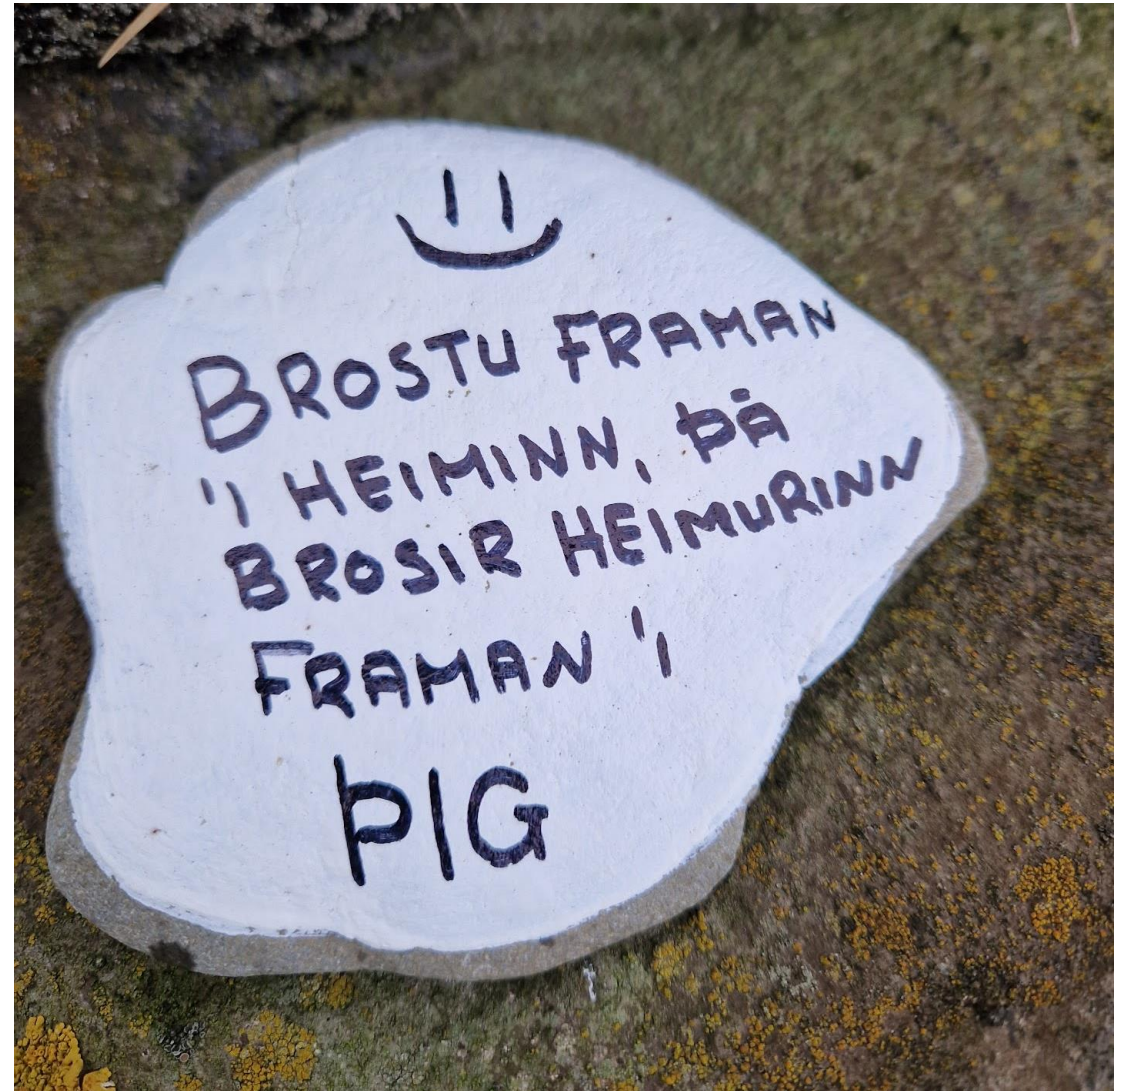 BROSTU FRAMAN
Í HEIMINN, ÞÁ
BROSIR HEIMURINN
FRAMAN Í
ÞIG